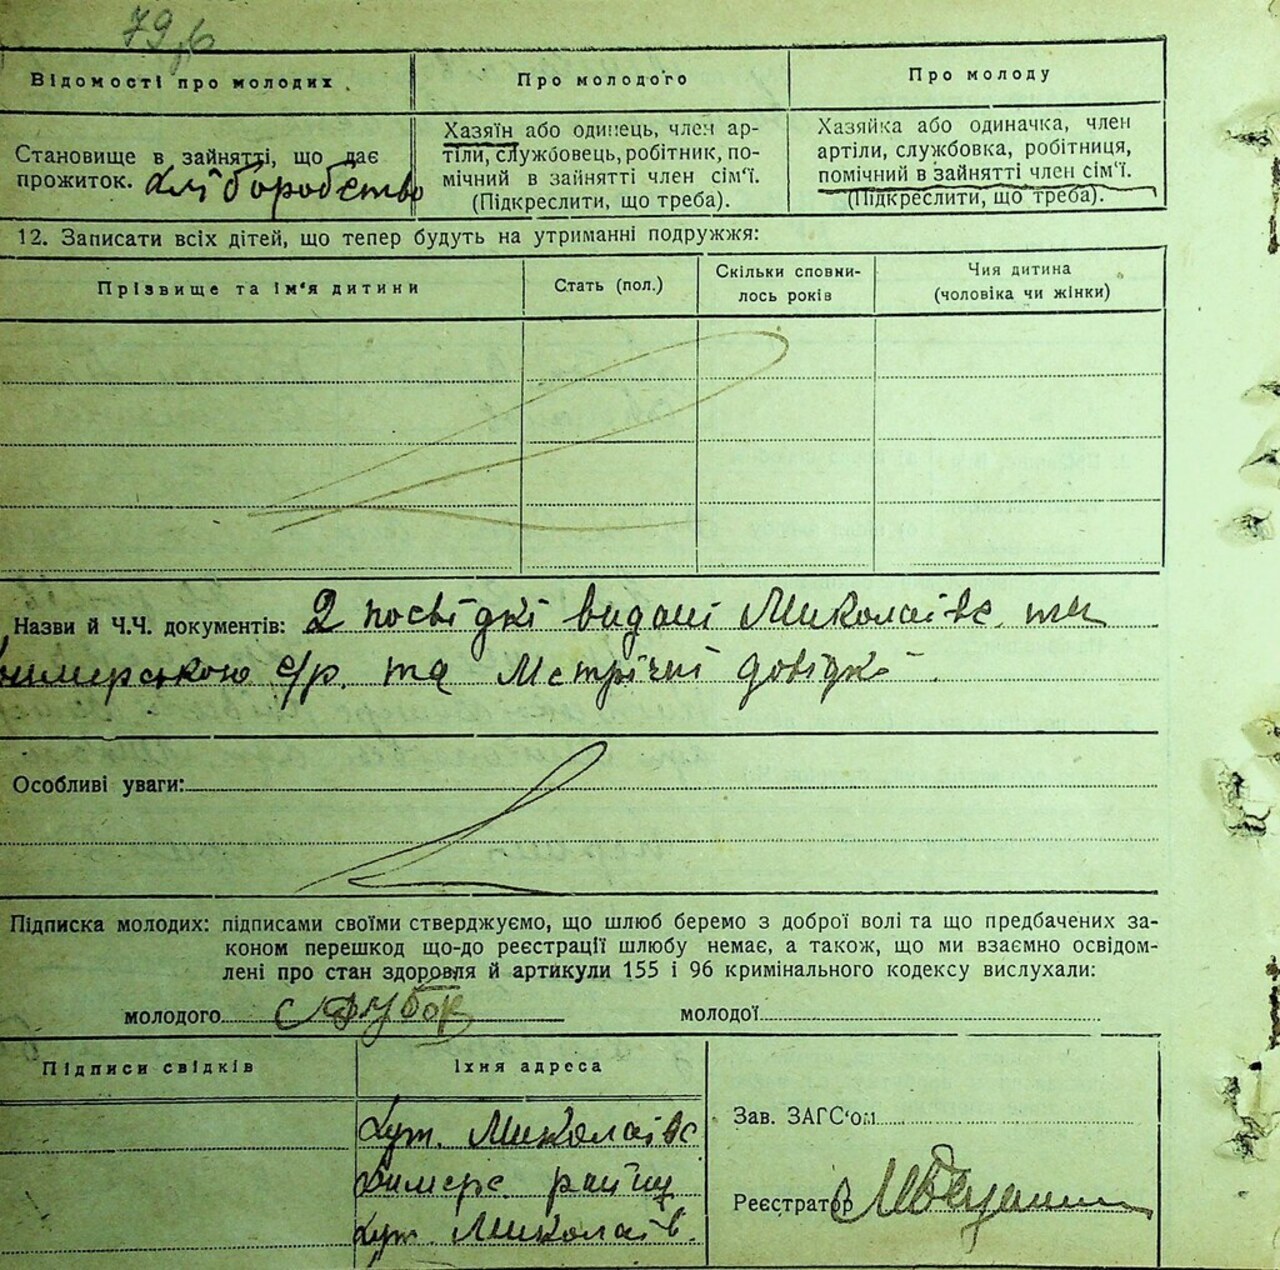 79
Відомості про молодих
Про молодого
Про молоду
Становище в зайнятті, що дає
прожиток. Хліборобство
Хазяїн або одинець, член ар-
тіли, службовець, робітник, по-
мічний в зайнятті член сім'ї.
(Підкреслити, що треба).
Хазяйка або одиначка, член
артіли, службовка, робітниця,
помічний в зайнятті член сім'ї.
(Підкреслити, що треба).
12. Записати всіх дітей, що тепер будуть на утриманні подружжя:
Прізвище та ім'я дитини
Стать (пол.)
Скільки сповни-
лось років
Чия дитина
(чоловіка чи жінки)
Назви й Ч.Ч. документів: 2 посвідкі видані Миколаївс. та
Димерською с/р. та Метрічні довідкі
Особливі уваги:
Підписка молодих: підписами своїми стверджуємо, що шлюб беремо з доброї волі та що предбачених за-
коном перешкод що-до реєстрації шлюбу немає, а також, що ми взаємно освідом-
лені про стан здоровля й артикули 155 і 96 кримінального кодексу вислухали:
молодого
молодої
Підписи свідків
Їхня адреса
Хут. Миколаївс
Димерс. району
Хут. Миколаїв.
Зав. ЗАГС'ом
Реєстратор